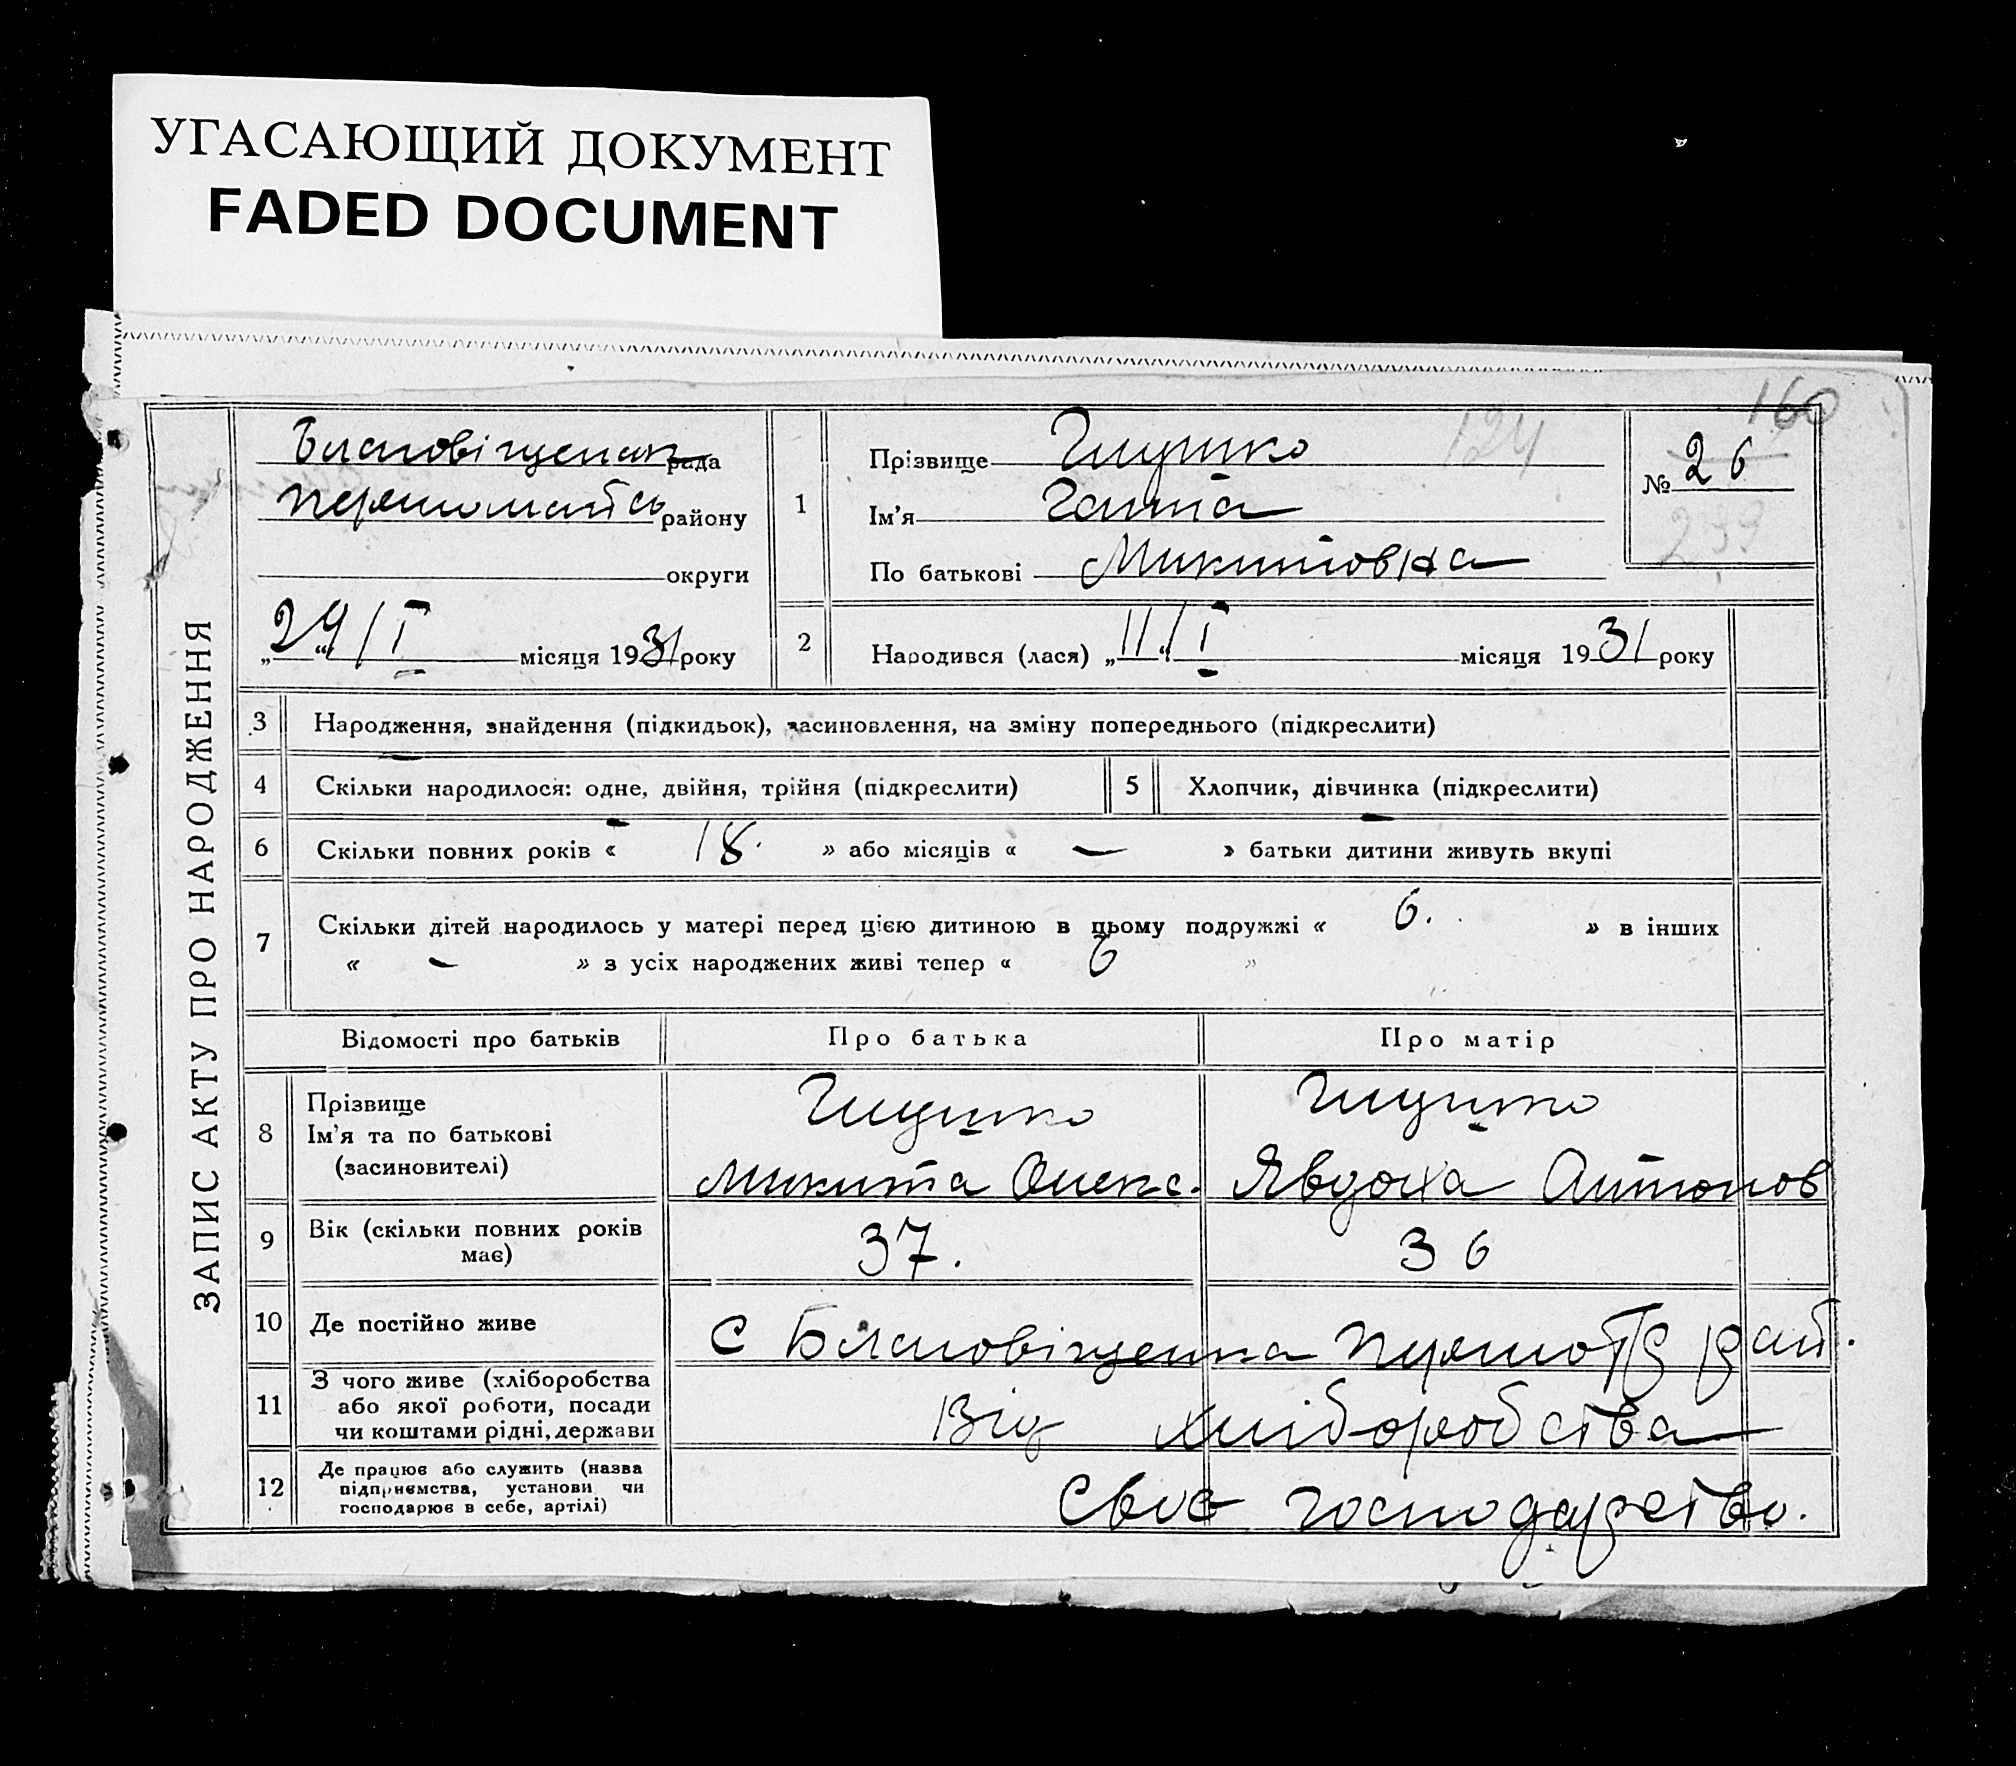 УГАСАЮЩИЙ ДОКУМЕНТ
FADED DOCUMENT
160
ЗАПИС АКТУ ПРО НАРОДЖЕННЯ
Благовіщенск рада
Першомайсь району
округи
„29“ I місяця 1931 року
1
Прізвище Глушко
124
Ім'я Ганна
По батькові Микитовна
№ 26
299
2 Народився (лася) „11“ I місяця 1931 року
3 Народження, знайдення (підкидьок), засиновлення, на зміну попереднього (підкреслити)
4 Скільки народилося: одне, двійня, трійня (підкреслити) 5 Хлопчик, дівчинка (підкреслити)
6 Скільки повних років « 18. » або місяців « — » батьки дитини живуть вкупі
7 Скільки дітей народилось у матері перед цією дитиною в цьому подружжі « 6. » в інших
« — » з усіх народжених живі тепер « 6 »
Відомості про батьків Про батька Про матір
8 Прізвище
Ім'я та по батькові
(засиновителі)
Глушко
Микита Олекс.
Глушко
Явдоха Антонов
9 Вік (скільки повних років
має)
37. 36
10 Де постійно живе с Благовіщенка Першотр рай.
11 З чого живе (хліборобства
або якої роботи, посади
чи коштами рідні, держави
Від хліборобства
12 Де працює або служить (назва
підприємства, установи чи
господарює в себе, артілі)
Своє господарство.